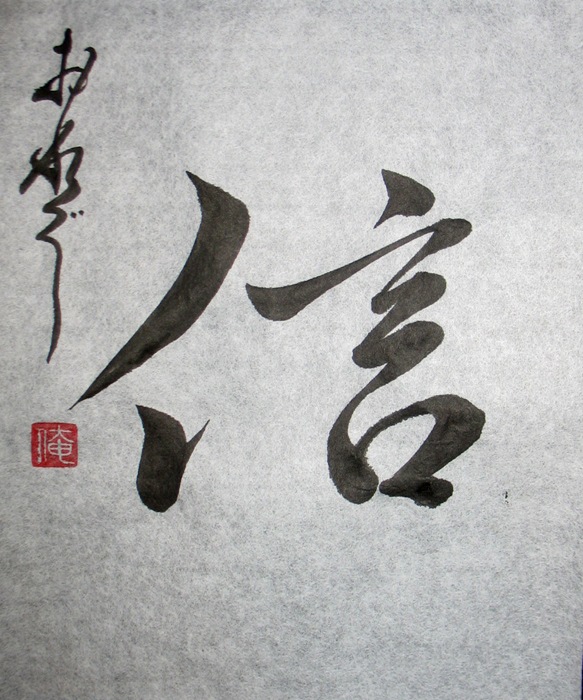 信
おれぐ
俺